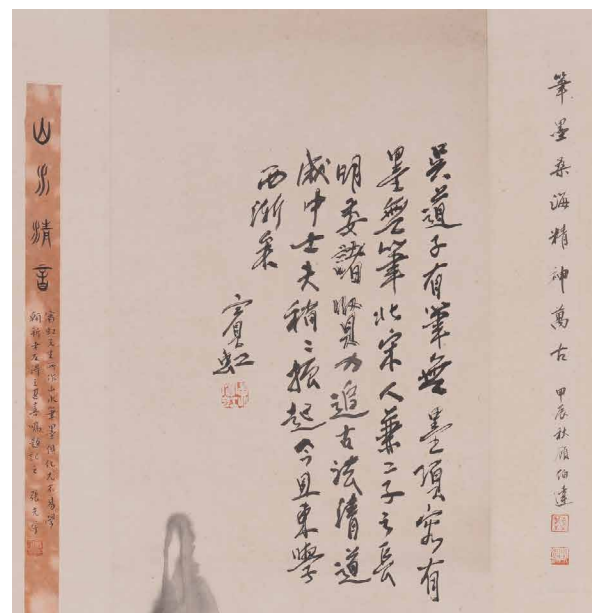 筆墨桑海精神萬古 甲辰秋顧伯
吳道子有筆無墨項容有
墨無筆此宋人兼二子之長
明季諸賢力追古法清道
咸中士夫稍〻振起今且東學
西漸矣
賓虹
山水清音
賓虹先生所作山水筆墨俱化尤不易學